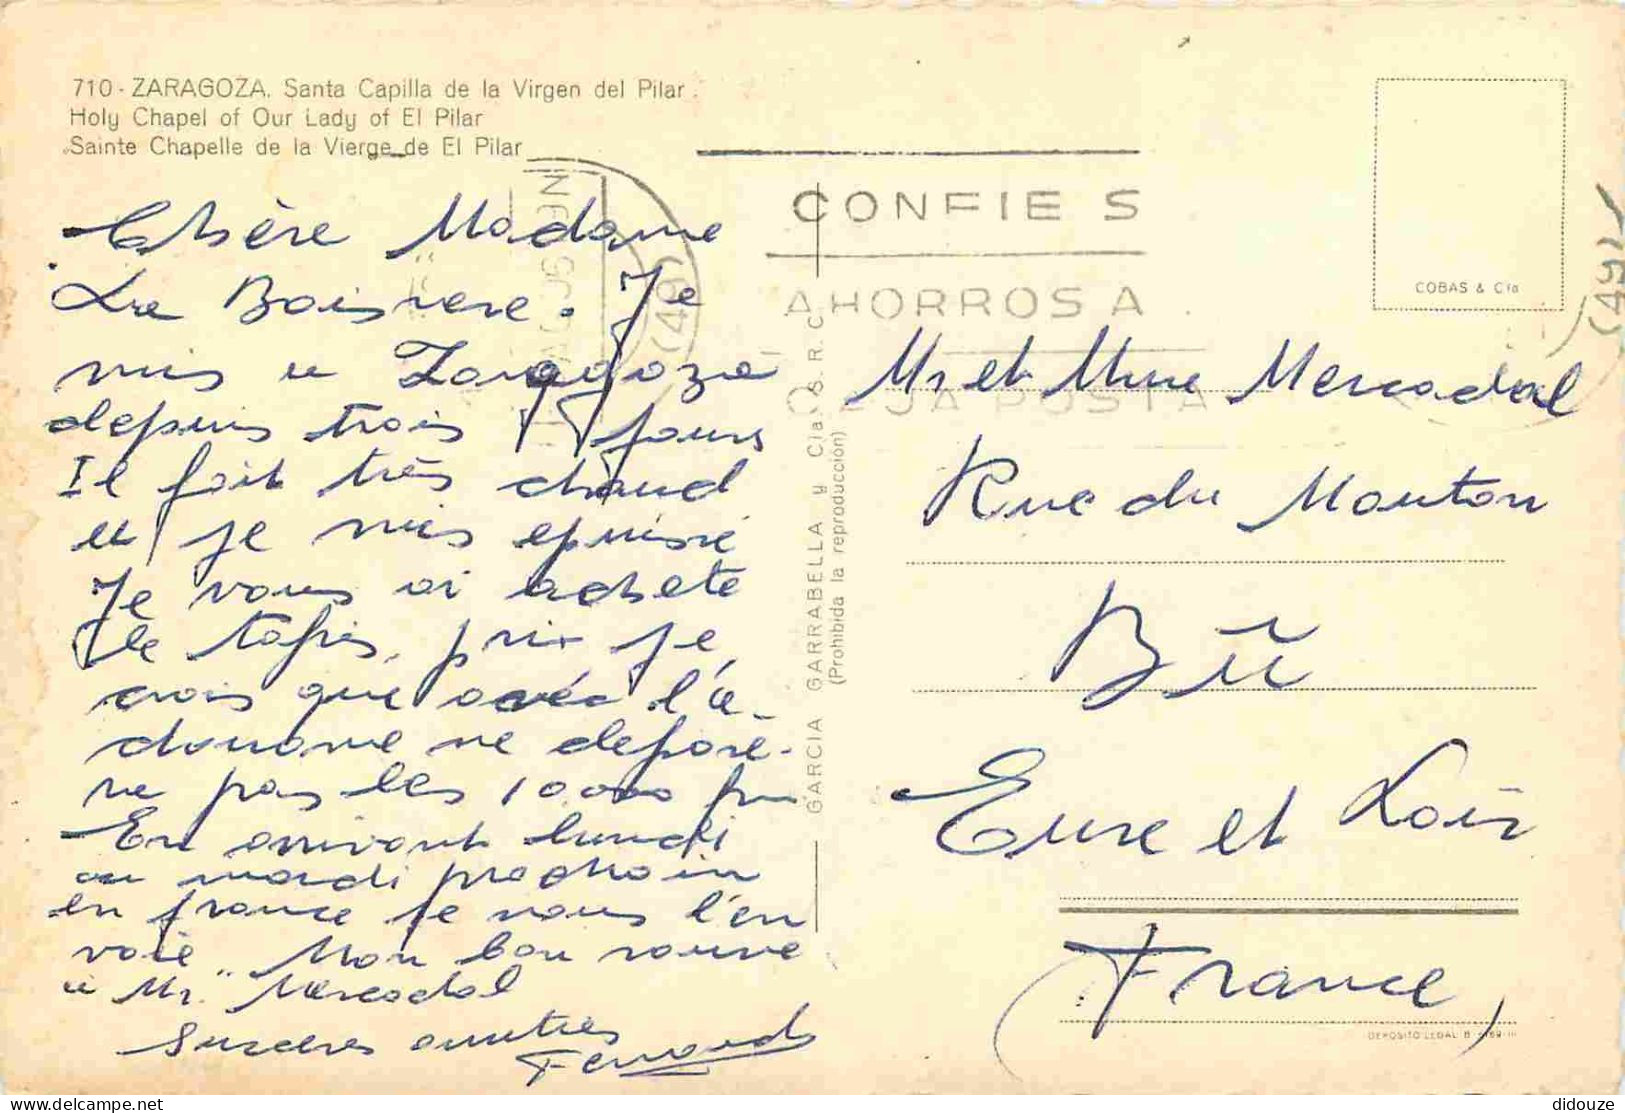 710 - ZARAGOZA. Santa Capilla de la Virgen del Pilar.
Holy Chapel of Our Lady of El Pilar
Sainte Chapelle de la Vierge de El Pilar
Chère Madame
Je
suis a Zaragoza
depuis trois jours
Il fait très chaud
et je suis epuisé
Je vous ai achete
le tapis, prix je
crois que avec la
douane ne depose-
ra pas les 10.000 frs
En arrivant lundi
ou mardi prochain
en france je vous l'en
voie. Mon bon souve
a Mr. Mercadal
Sinceres amitiés
Fernand
CONFIE S
AHORROS A
JA POSTA
(49)
(49)
GARCIA GARRABELLA y Cia. S. R. C.
(Prohibida la reproducción)
COBAS & Cía
Mr et Mme Mercadal
Rue du Mouton
Bû
Eure et Loir
(France)
DEPOSITO LEGAL B
didouze